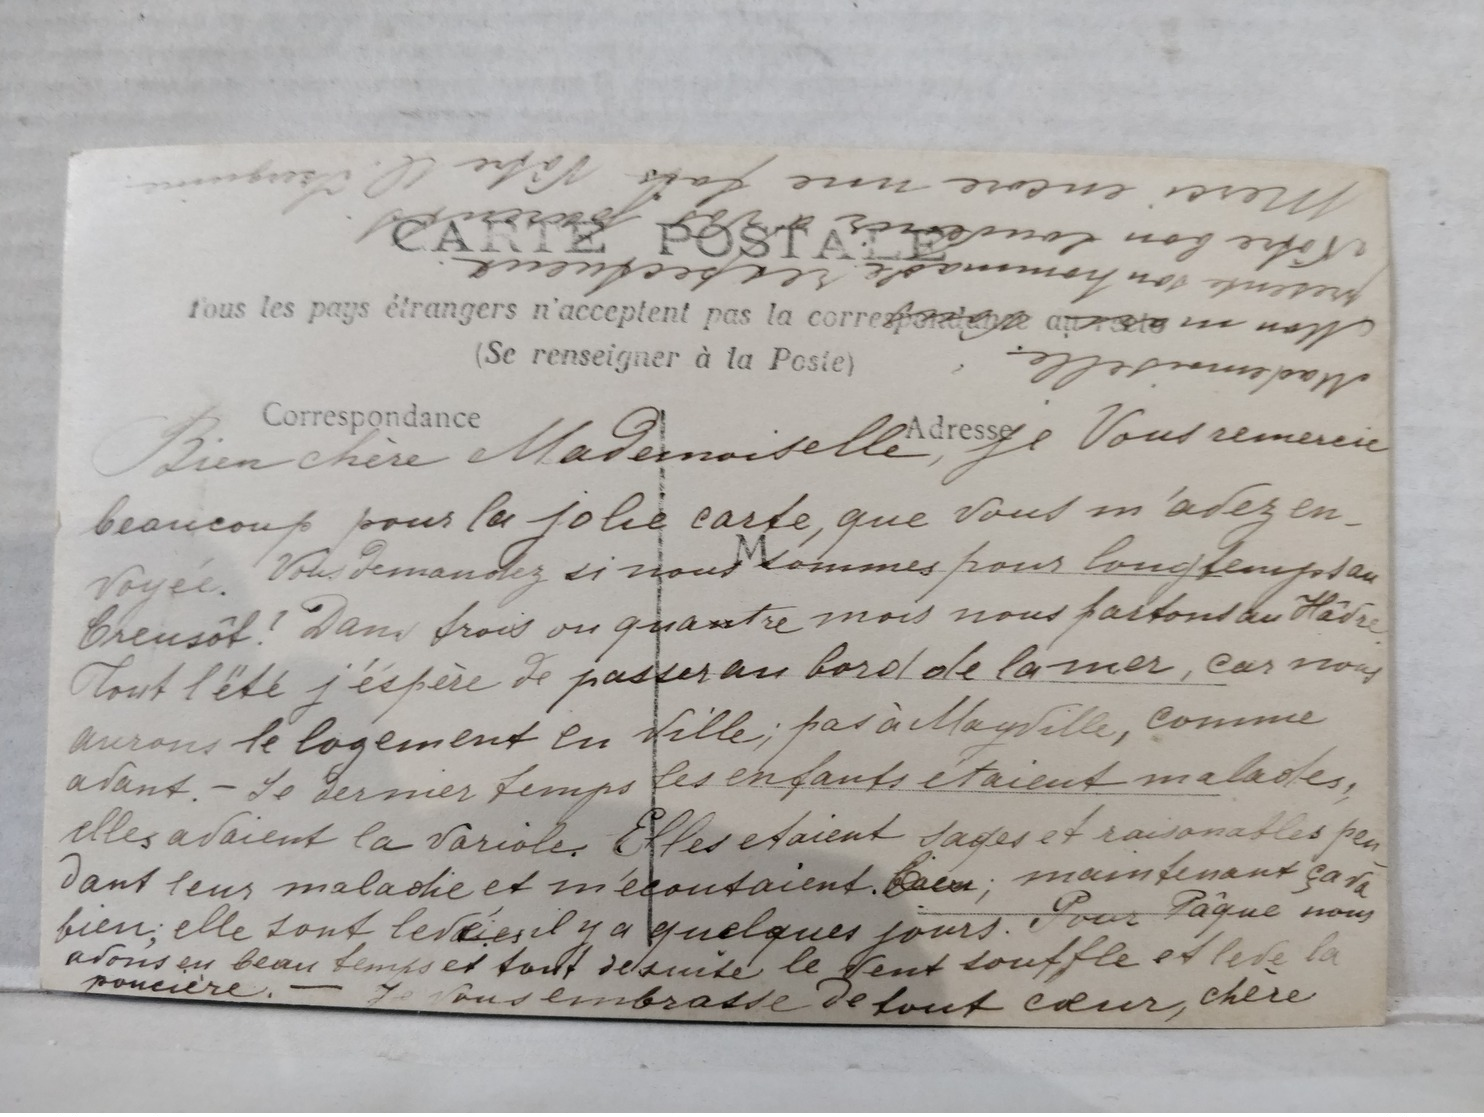 CARTE POSTALE
Tous les pays étrangers n'acceptent pas la correspondance au recto
(Se renseigner à la Poste)
Correspondance
Adresse
M
Bien chère Mademoiselle, je Vous remercie
beaucoup pour la jolie carte, que vous m'avez en-
voyée. Vous demandez si nous sommes pour longtemps au
Creusôt! Dans trois ou quantre mois nous partons au Hâvre.
Tout l'été j'éspère de passer au bord de la mer, car nous
aurons le logement en ville; pas à Mayville, comme
avant. - Le dernier temps les enfants étaient malades,
elles avaient la variole. Elles etaient sages et raisonables pen
dant leur maladie et m'ecoutaient. Bien; maintenant ça va
bien; elle sont levées il y a quelques jours. Pour Pâque nous
avons eu beau temps et tout de suite le vent souffle et leve la
poucière. — Je vous embrasse de tout cœur, chère
Mademoiselle.
Mon mari Vous
presente son hommage respectueux.
Votre bon souvenir
Merci encore une fois Votre